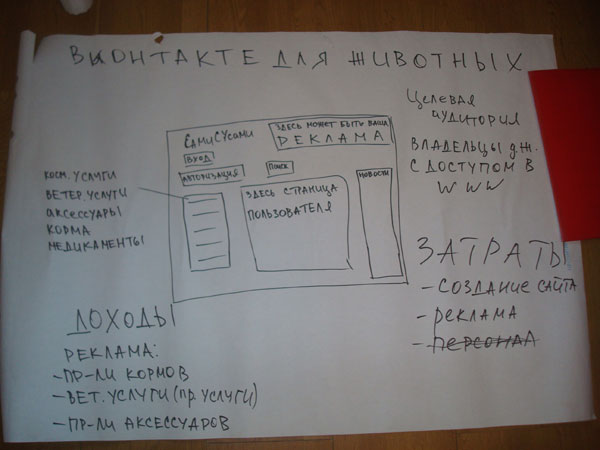 ВКОНТАКТЕ ДЛЯ ЖИВОТНЫХ
ЦЕЛЕВАЯ
АУДИТОРИЯ
ВЛАДЕЛЬЦЫ д.ж.
С ДОСТУПОМ В
WWW
САМИСУСАМИ
ЗДЕСЬ МОЖЕТ БЫТЬ ВАША
РЕКЛАМА
ВХОД
АВТОРИЗАЦИЯ
ПОИСК
НОВОСТИ
ЗДЕСЬ СТРАНИЦА
ПОЛЬЗОВАТЕЛЯ
КОСМ. УСЛУГИ
ВЕТЕР. УСЛУГИ
АКСЕССУАРЫ
КОРМА
МЕДИКАМЕНТЫ
ЗАТРАТЫ
- СОЗДАНИЕ САЙТА
- РЕКЛАМА
- ПЕРСОНАЛ
ДОХОДЫ
РЕКЛАМА:
- ПР-ЛИ КОРМОВ
- ВЕТ. УСЛУГИ (ПР. УСЛУГИ)
- ПР-ЛИ АКСЕССУАРОВ